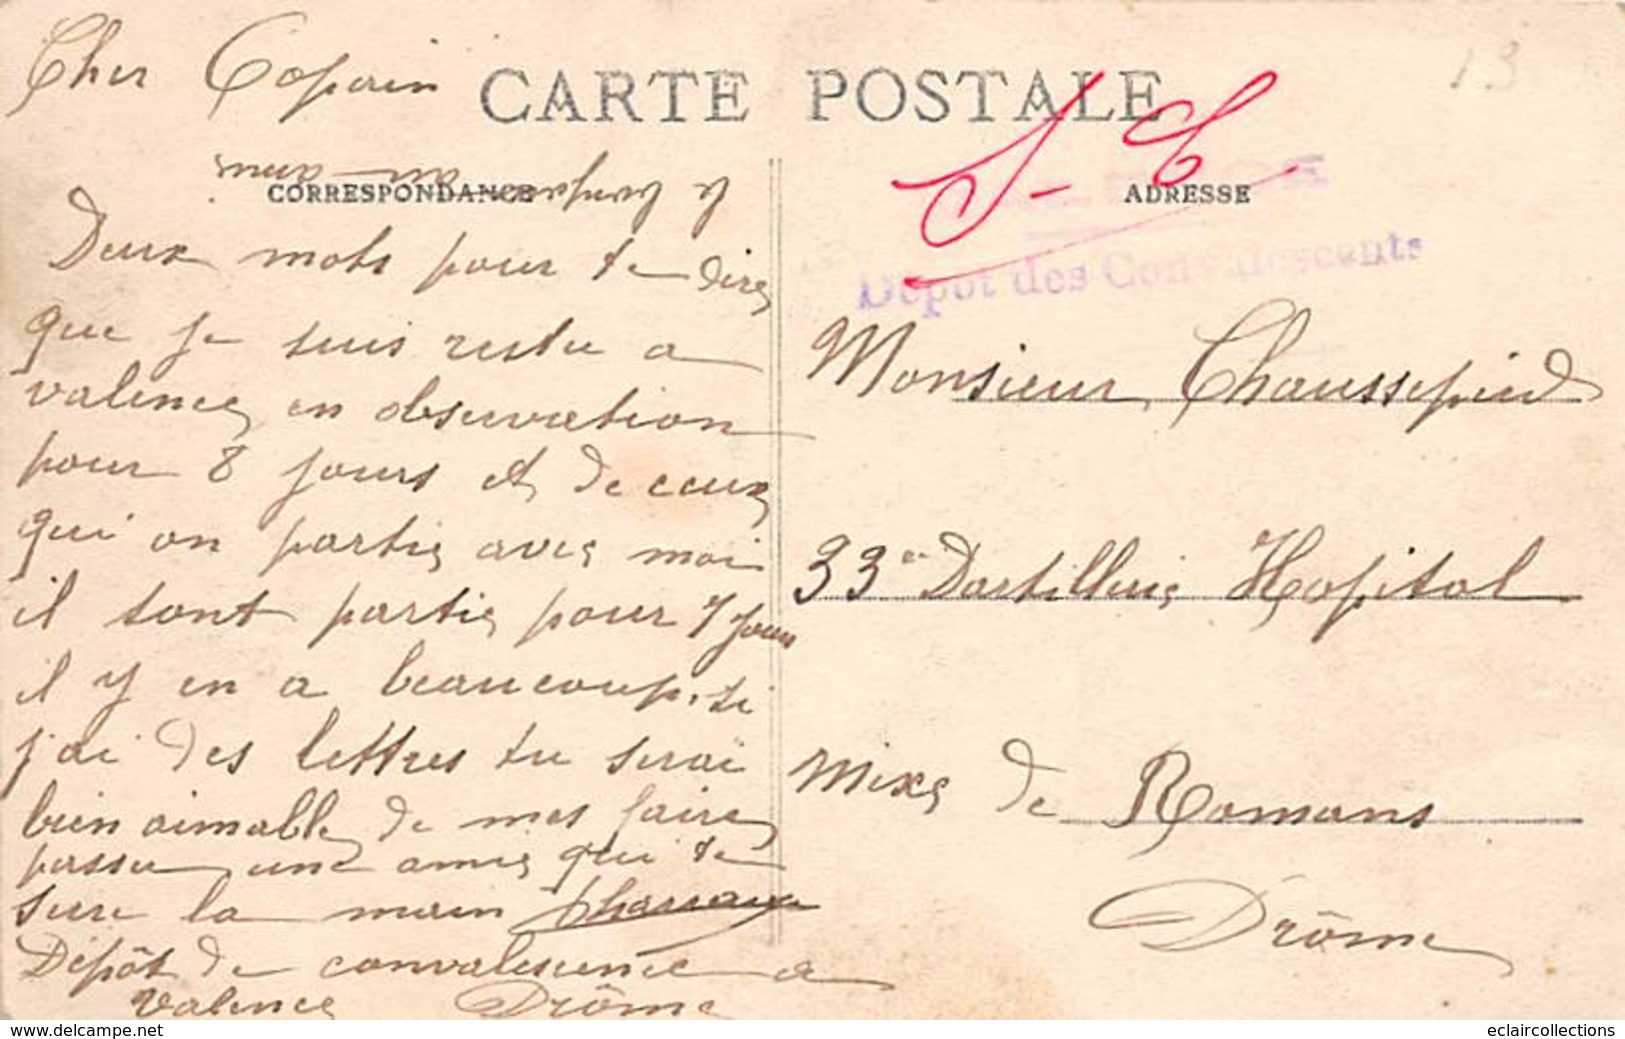 Cher Copain
CARTE POSTALE
13
S-C
CORRESPONDANCE
ADRESSE
Dépôt des Convalescents
Deux mots pour te dire
que je suis reste a
valence en observation
pour 8 jours et de ceux
qui on partie avec moi
il sont partie pour 7 jours
il y en a beaucoup. si
j'ai des lettres tu serai
bien aimable de mes faire
passer une amie qui te
sere la main
Dépôt de convalescence a
Valence Drôme
Monsieur Chaussepied
33e Dartillerie Hopital
mixe de Romans
Drôme
eclaircollections
www.delcampe.net